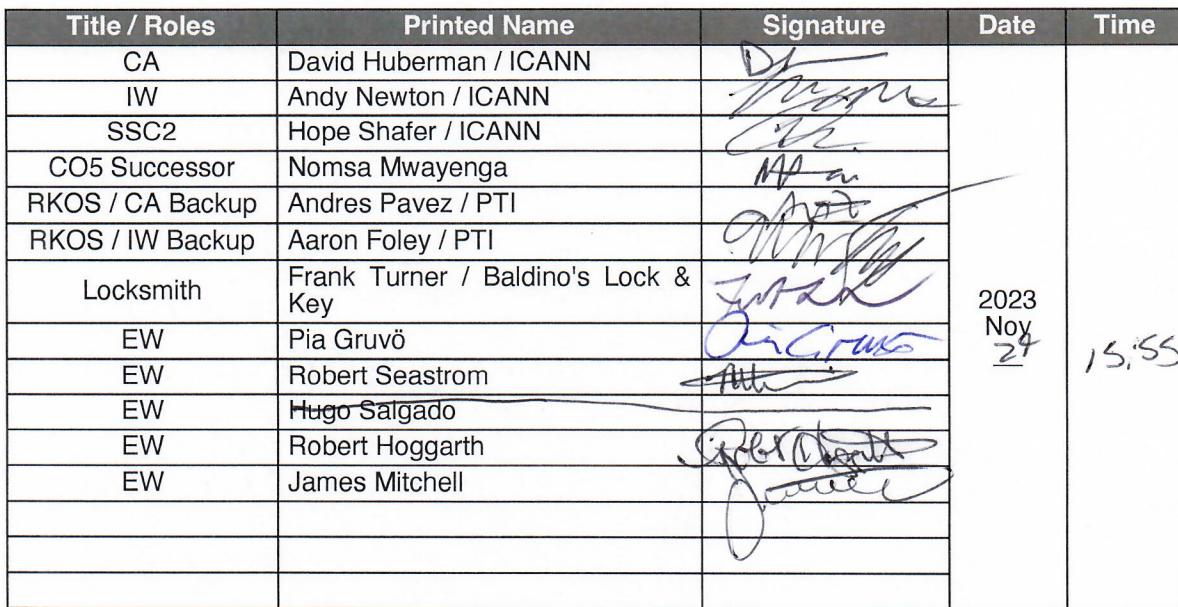 Title / Roles Printed Name Signature Date Time
CA David Huberman / ICANN
IW Andy Newton / ICANN
SSC2 Hope Shafer / ICANN
CO5 Successor Nomsa Mwayenga
RKOS / CA Backup Andres Pavez / PTI
RKOS / IW Backup Aaron Foley / PTI
Locksmith Frank Turner / Baldino's Lock &
Key
EW Pia Gruvö
EW Robert Seastrom
EW Hugo Salgado
EW Robert Hoggarth
EW James Mitchell
2023
Nov
15:55